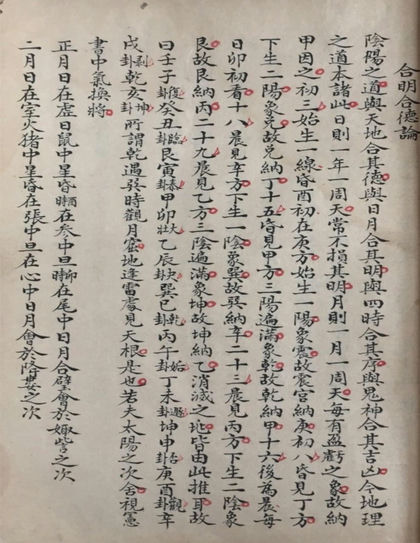 合明合德論
陰陽之道與天地合其德與日月合其明與四時合其序與鬼神合其吉凶今地理
之道本諸此日則一年一周天常不損其明月則一月一周天每有盈虧之象故納
甲因之初三始生一線昏酉初在庚方始生一陽象震故震宮納庚初八昏見丁方
下生二陽象兌故兌納丁十五昏見甲方三陽遍滿象乾故乾納甲十六後為晨每
日卯初看十八晨見辛方下生一陰象巽故巽納辛二十三晨見丙方下生二陰象
艮故艮納丙二十九晨見乙方三陰遍滿象坤故坤納乙消滅之地皆由此推耳故
曰壬子復卦癸丑臨卦艮寅泰卦甲卯大壯乙辰夬卦巽巳乾卦丙午姤卦丁未遯卦坤申否卦庚酉觀卦辛
戌剝卦乾亥坤卦所謂乾遇巽時觀月窟地逢雷處見天根是也若夫太陽之次舍視憲
書中氣換將
正月日在虛日鼠中星昏在参中旦在尾中日月合璧會於娵訾之次
二月日在室火猪中星昏在張中旦在心中日月會於降婁之次